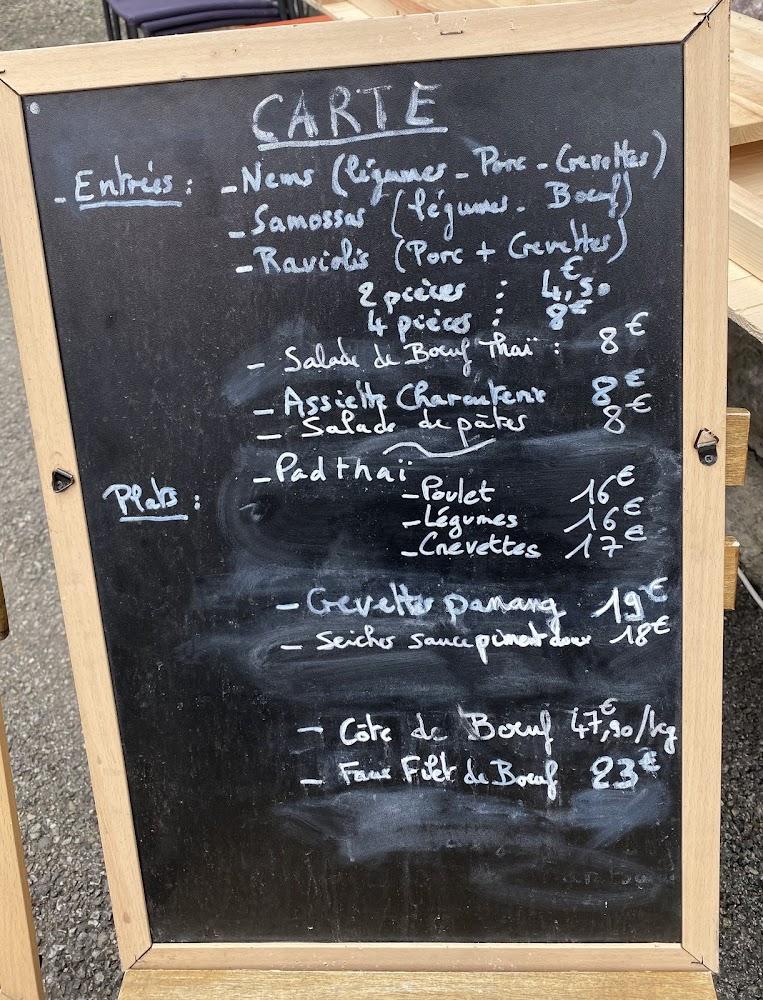 CARTE
- Entrées : - Nems (légumes - Porc - Crevettes)
- Samossas (légumes - Boeuf)
- Raviolis (Porc + Crevettes)
2 pièces : 4,50€
4 pièces : 8€
- Salade de Boeuf Thaï : 8€
- Assiette Charcuterie 8€
- Salade de pâtes 8€
- Pad thaï
Plats :
- Poulet 16€
- Légumes 16€
- Crevettes 17€
- Crevettes panang 19€
- Seiches sauce piment doux 18€
- Côte de Boeuf 47,90€/kg
- Faux Filet de Boeuf 23€